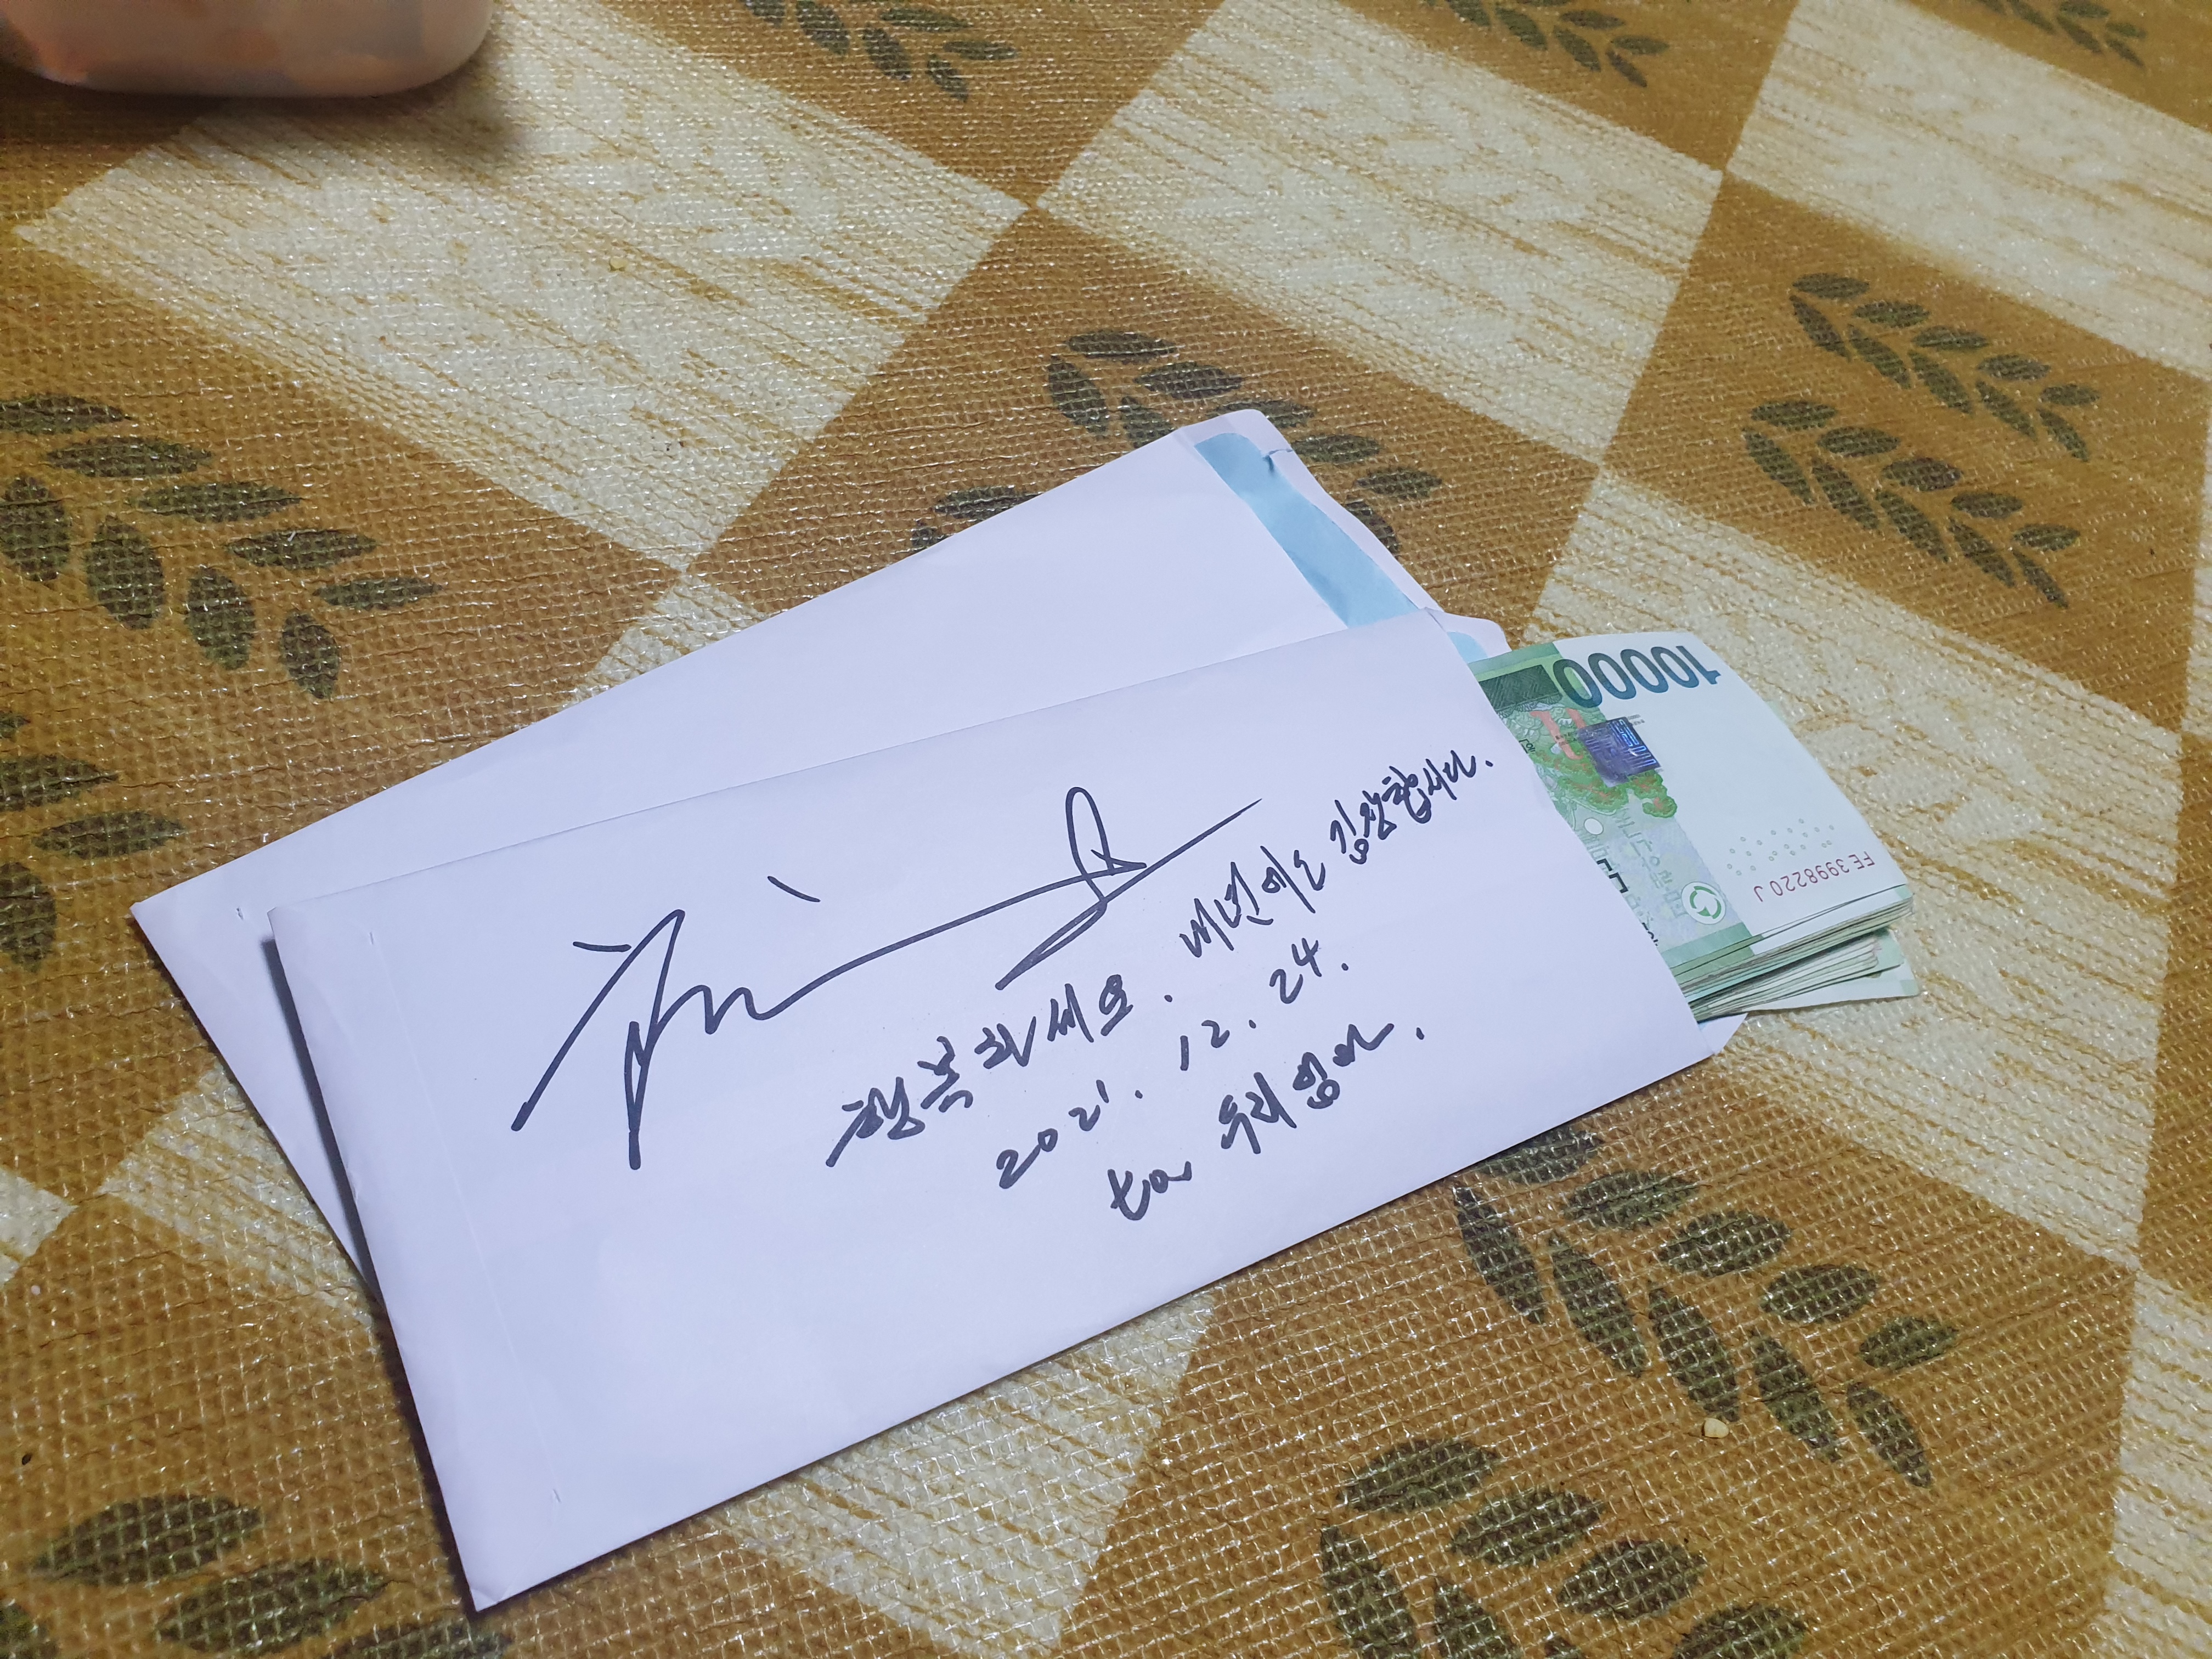 행복하세요. 내년에는 김장합시다.
2021. 12. 24.
to 우리엄마.
10000
FE3998220J